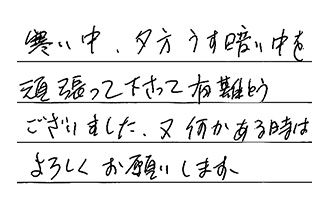 寒い中、夕方うす暗い中を
頑張って下さって有難とう
ございました、又何かある時は
よろしくお願いします、